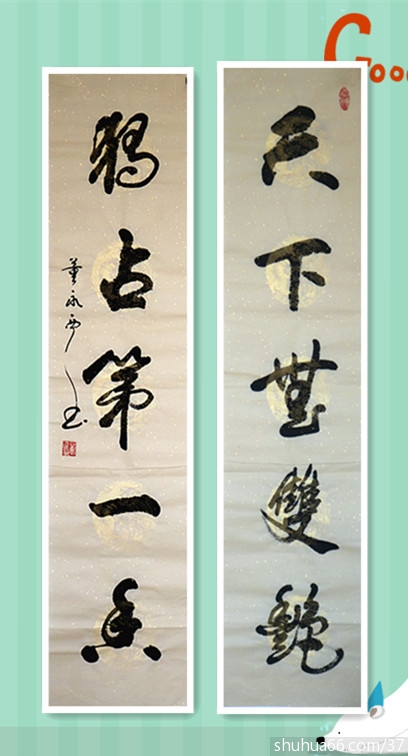 天下無雙艷
獨占第一香
董永
Goo
shuhua66.com/37